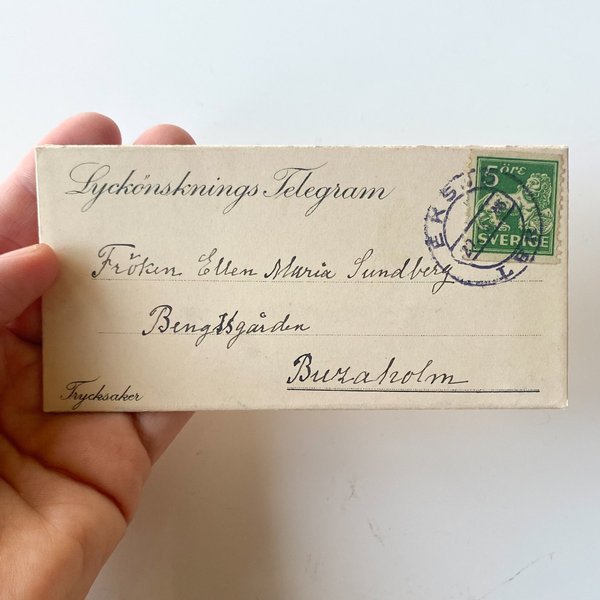 Lyckönsknings Telegram
5 ÖRE
SVERIGE
Fröken Ellen Maria Sundberg
Bengtsgården
Buraholm
Trycksaker